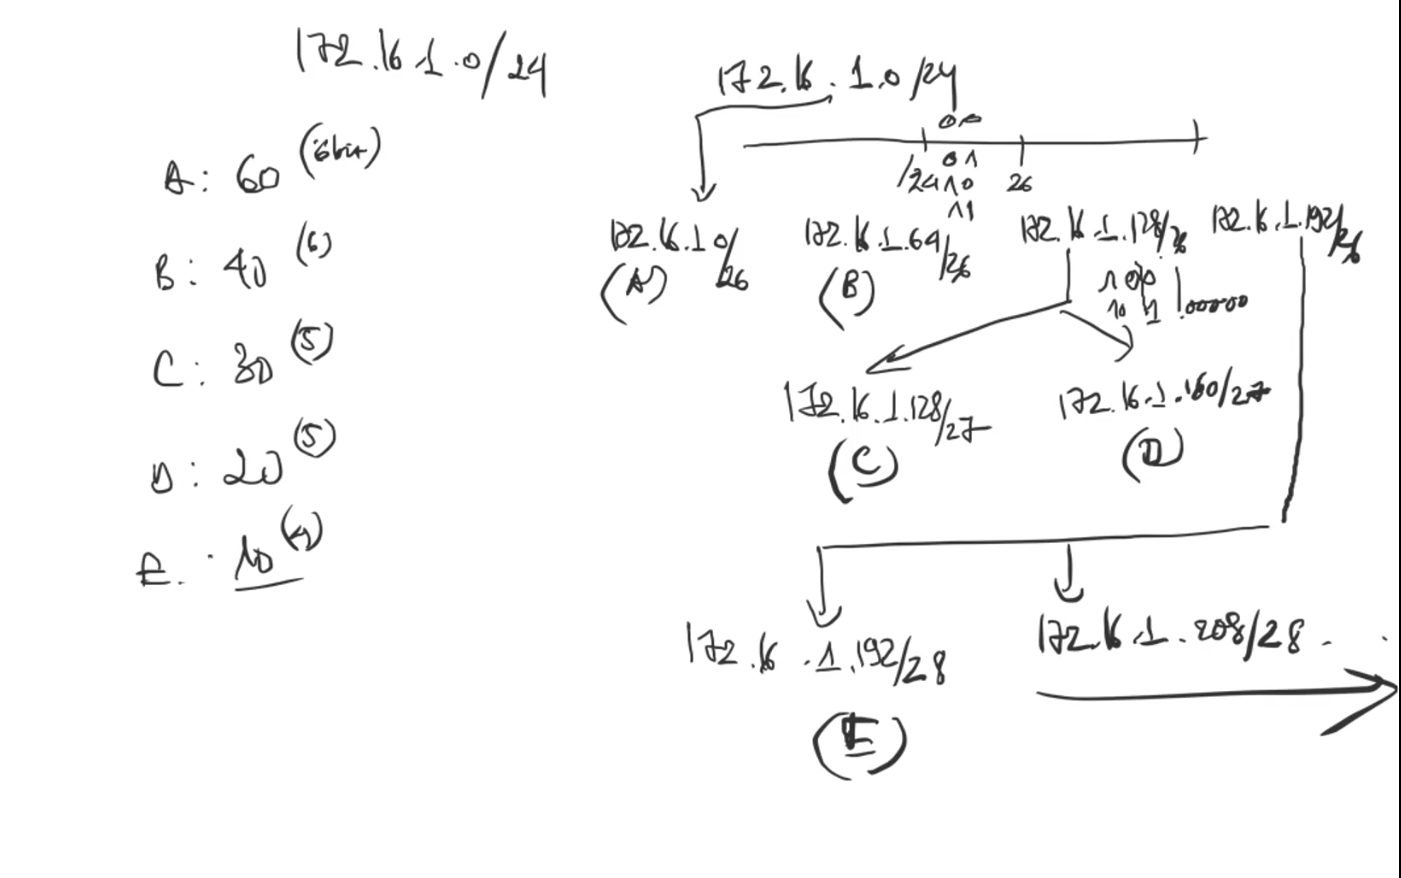 172.16.1.0/24
A: 60 (6bit)
B: 40 (6)
C: 30 (5)
D: 20 (5)
E: 10 (4)
172.16.1.0/24
00
01
/24 10 26
11
172.16.1.0/26 172.16.1.64/26 172.16.1.128/26 172.16.1.192/26
(A) (B)
10 0
10 1 00000
172.16.1.128/27 172.16.1.160/27
(C) (D)
172.16.1.192/28 172.16.1.208/28 . .
(E)